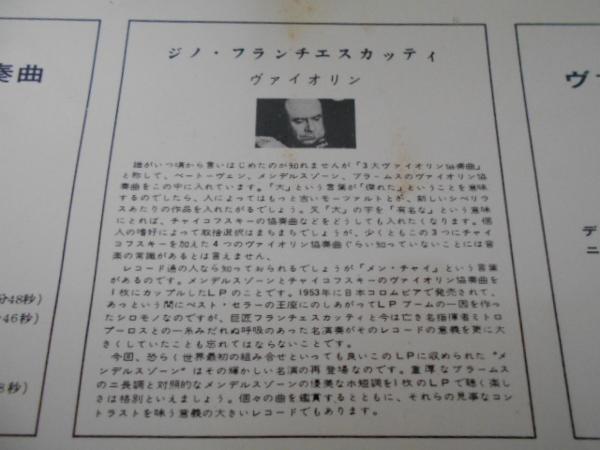 ジノ・フランチエスカッティ
ヴァイオリン
誰がいつ頃から言いはじめたのか知れませんが「3大ヴァイオリン協奏曲」
と称して、ベートーヴェン、メンデルスゾーン、ブラームスのヴァイオリン協
奏曲をこの中に入れています。「大」という言葉が「傑れた」ということを意味
するのでしたら、人によってはもっと古いモーツァルトとか、新しいシベリウ
スあたりの作品を入れたがるでしょう。又「大」の字を「有名な」という意味
にとれば、チャイコフスキーの協奏曲などをどうしても入れたくなります。個
人の嗜好によって取捨選択はまちまちでしょうが、少くともこの3つにチャイ
コフスキーを加えた4つのヴァイオリン協奏曲ぐらい知っていないことには音
楽の常識があるとは言えません。
レコード通の人なら知っておられるでしょうが「メン・チャイ」という言葉
があるのです。メンデルスゾーンとチャイコフスキーのヴァイオリン協奏曲を
1枚にカップルしたLPのことです。1953年に日本コロムビアで発売されて、
あっという間にベスト・セラーの王座にのしあがってLPブームの一因を作っ
たシロモノなのですが、巨匠フランチェスカッティと今は亡き名指揮者ミトロ
プーロスとの一糸みだれぬ呼吸のあった名演奏がそのレコードの意義を更に大
きくしていたことも忘れてはならないことです。
今回、恐らく世界最初の組み合せといっても良いこのLPに収められた“メ
ンデルスゾーン”はその輝かしい名演の再登場なのです。重厚なブラームス
のニ長調と対照的なメンデルスゾーンの優美なホ短調を1枚のLPで聴く楽し
さは格別といえましょう。個々の曲を鑑賞するとともに、それらの見事なコン
トラストを味う意義の大きいレコードでもあります。
奏曲
分48秒)
46秒)
秒)
8秒)
ヴ
デ
ニ